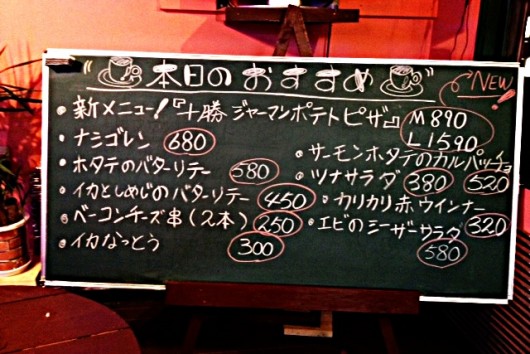 本日のおすすめ
NEW!
• 新メニュー!『十勝ジャーマンポテトピザ』 M 890
L 1590
• ナシゴレン 680
• ホタテのバターソテー 580
• イカとしめじのバターソテー 450
• ベーコンチーズ串(2本) 250
• イカなっとう 300
• サーモンホタテのカルパッチョ 520
• ツナサラダ 380
• カリカリ赤ウインナー 320
• エビのシーザーサラダ 580